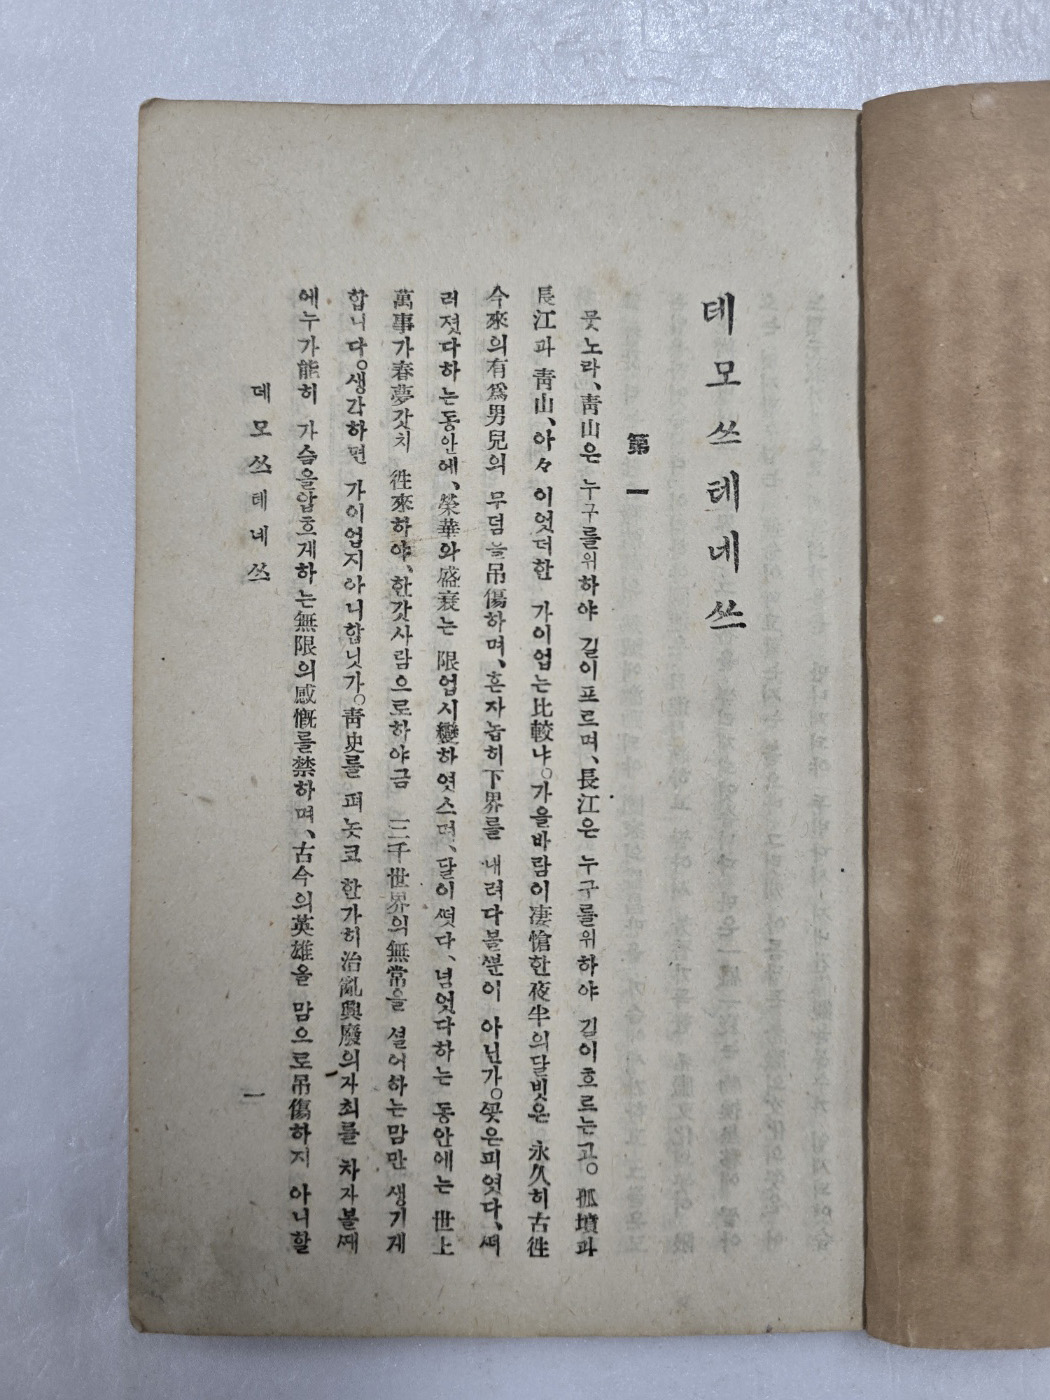 데모쓰테네쓰
第一
뭇노라、靑山은 누구를위하야 길이프르며、長江은 누구를위하야 길이흐르는고。孤墳과
長江과 靑山、아々 이엇더한 가이업는比較냐。가을바람이凄愴한夜半의달빗은 永久히古徃
今來의有爲男兒의 무덤을吊傷하며、혼자놉히下界를 내려다볼뿐이 아닌가。꼿은피엿다、떠
러젓다하는동안에、榮華와盛衰는 限업시變하엿스며、달이떳다、넘엇다하는 동안에는 世上
萬事가春夢갓치 徃來하야、한갓사람으로하야금 三千世界의無常을 설어하는맘만 생기게
합니다。생각하면 가이업지아니합닛가。靑史를 펴놋코 한가히治亂興廢의자최를 차자볼때
에누가能히 가슴을압흐게하는無限의感慨를禁하며、古今의英雄을 맘으로吊傷하지 아니할
데모쓰테네쓰
一